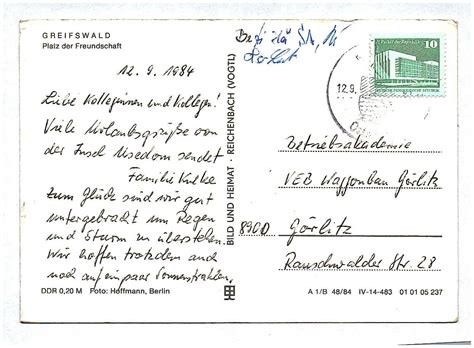 GREIFSWALD
Platz der Freundschaft
12.9.1984
Liebe Kolleginnen und Kollegen!
Viele Urlaubsgrüße von
der Insel Usedom sendet
Familie Kulke
Zum Glück sind wir gut
untergebracht um Regen
und Sturm zu überstehen.
Wir hoffen trotzdem und
noch auf ein paar Sonnenstrahlen.
DDR 0,20 M Foto: Hoffmann, Berlin
BILD UND HEIMAT · REICHENBACH (VOGTL)
10
12.9.
Betriebsakademie
VEB Waggonbau Görlitz
8900 Görlitz
Rauschwalder Str. 28
A 1/B 48/84 IV-14-483 01 01 05 237